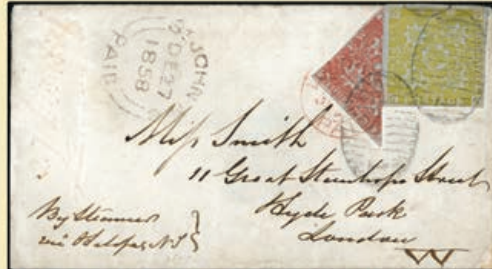 ST JOHN
DE 27
1858
PAID
Miss Smith
11 Great Stanhope Street
Hyde Park
London
W
By Steamer
via Halifax N.S